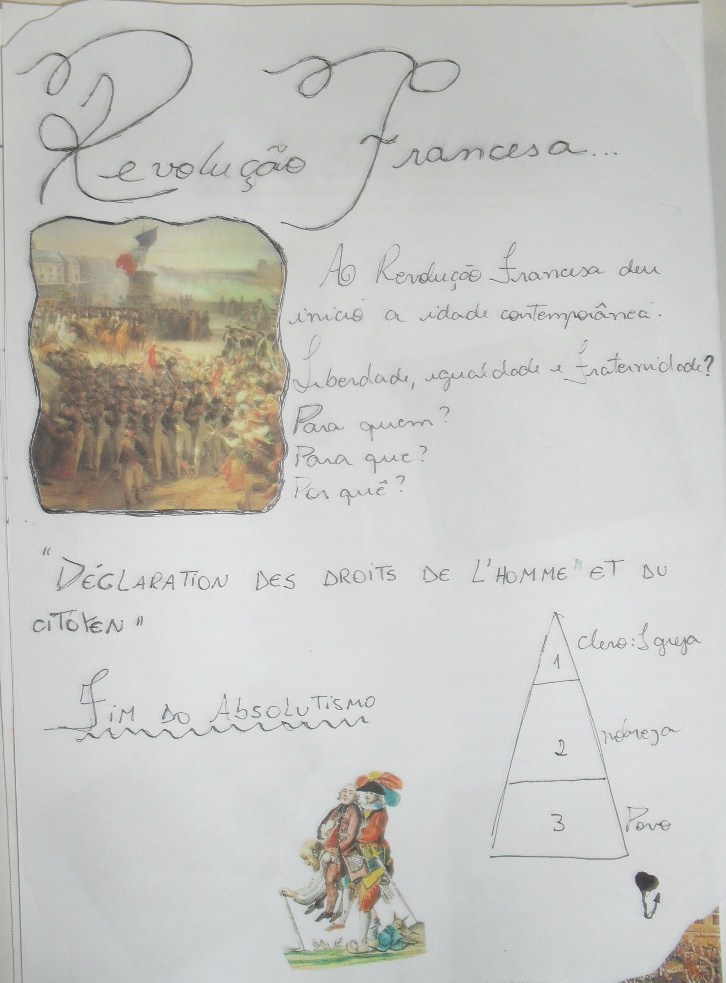 Revolução Francesa...
A Revolução Francesa deu
início a idade contemporânea.
Liberdade, igualdade e fraternidade?
Para quem?
Para que?
Por quê?
"DÉCLARATION DES DROITS DE L'HOMME" ET DU
CITOYEN"
FIM DO ABSOLUTISMO
1 clero: Igreja
2 nobreza
3 Povo